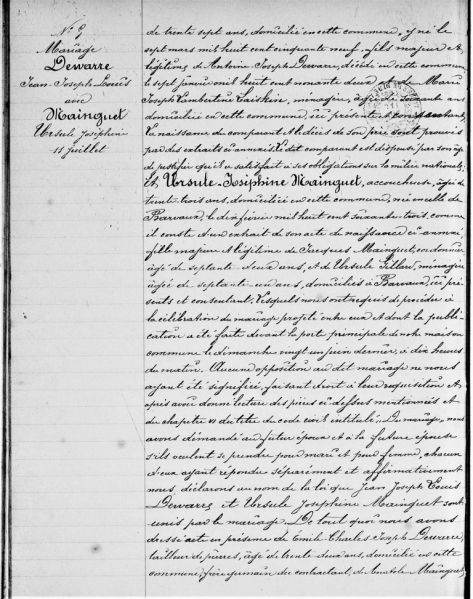 N. 9
Mariage
Dewarre
Jean Joseph Louis
avec
Mainguet
Ursule Joséphine
11 juillet
de trente sept ans, domicilié en cette commune, y né le
sept mars mil huit cent cinquante neuf, fils majeur et
légitime de Antoine Joseph Dewarre, décédé en cette commune
le sept janvier mil huit cent nonante deux et de Marie
Joseph Lambertine, ménagère, âgée de soixante ans
domiciliée en cette commune, ici présente et consentante,
La naissance du comparant et le décès de son père sont prouvés
par des extraits ci annexés. Le dit comparant est dispensé par son âge
de justifier qu'il a satisfait à ses obligations sur la milice nationale;
Et Ursule Joséphine Mainguet, accoucheuse, âgée de
trente trois ans, domiciliée en cette commune, née en celle de
Barvaux, le dix février mil huit cent soixante trois, comme
il conste d'un extrait de son acte de naissance ci annexé,
fille majeure et légitime de Jacques Mainguet, cordonnier,
âgé de septante deux ans, et de Ursule Gillard, ménagère
âgée de septante un ans, domiciliés à Barvaux, ici pré-
sents et consentant; Lesquels nous ont requis de procéder à
la célébration du mariage projeté entre eux et dont la publi-
cation a été faite devant la porte principale de notre maison
commune le dimanche vingt un juin dernier, à dix heures
du matin. Aucune opposition au dit mariage ne nous
ayant été signifiée, faisant droit à leur réquisition et
après avoir donné lecture des pièces ci dessus mentionnées et
du chapitre VI du titre du code civil intitulé "Du Mariage" nous
avons demandé au futur époux et à la future épouse
s'ils veulent se prendre pour mari et pour femme, chacun
d'eux ayant répondu séparément et affirmativement
nous déclarons au nom de la loi que Jean Joseph Louis
Dewarre et Ursule Joséphine Mainguet sont
unis par le mariage. De tout quoi nous avons
dressé acte en présence de Emile Charles Joseph Dewarre,
tailleur de pierres, âgé de trente deux ans, domicilié en cette
commune, frère germain du contractant, de Anatole Mainguet,